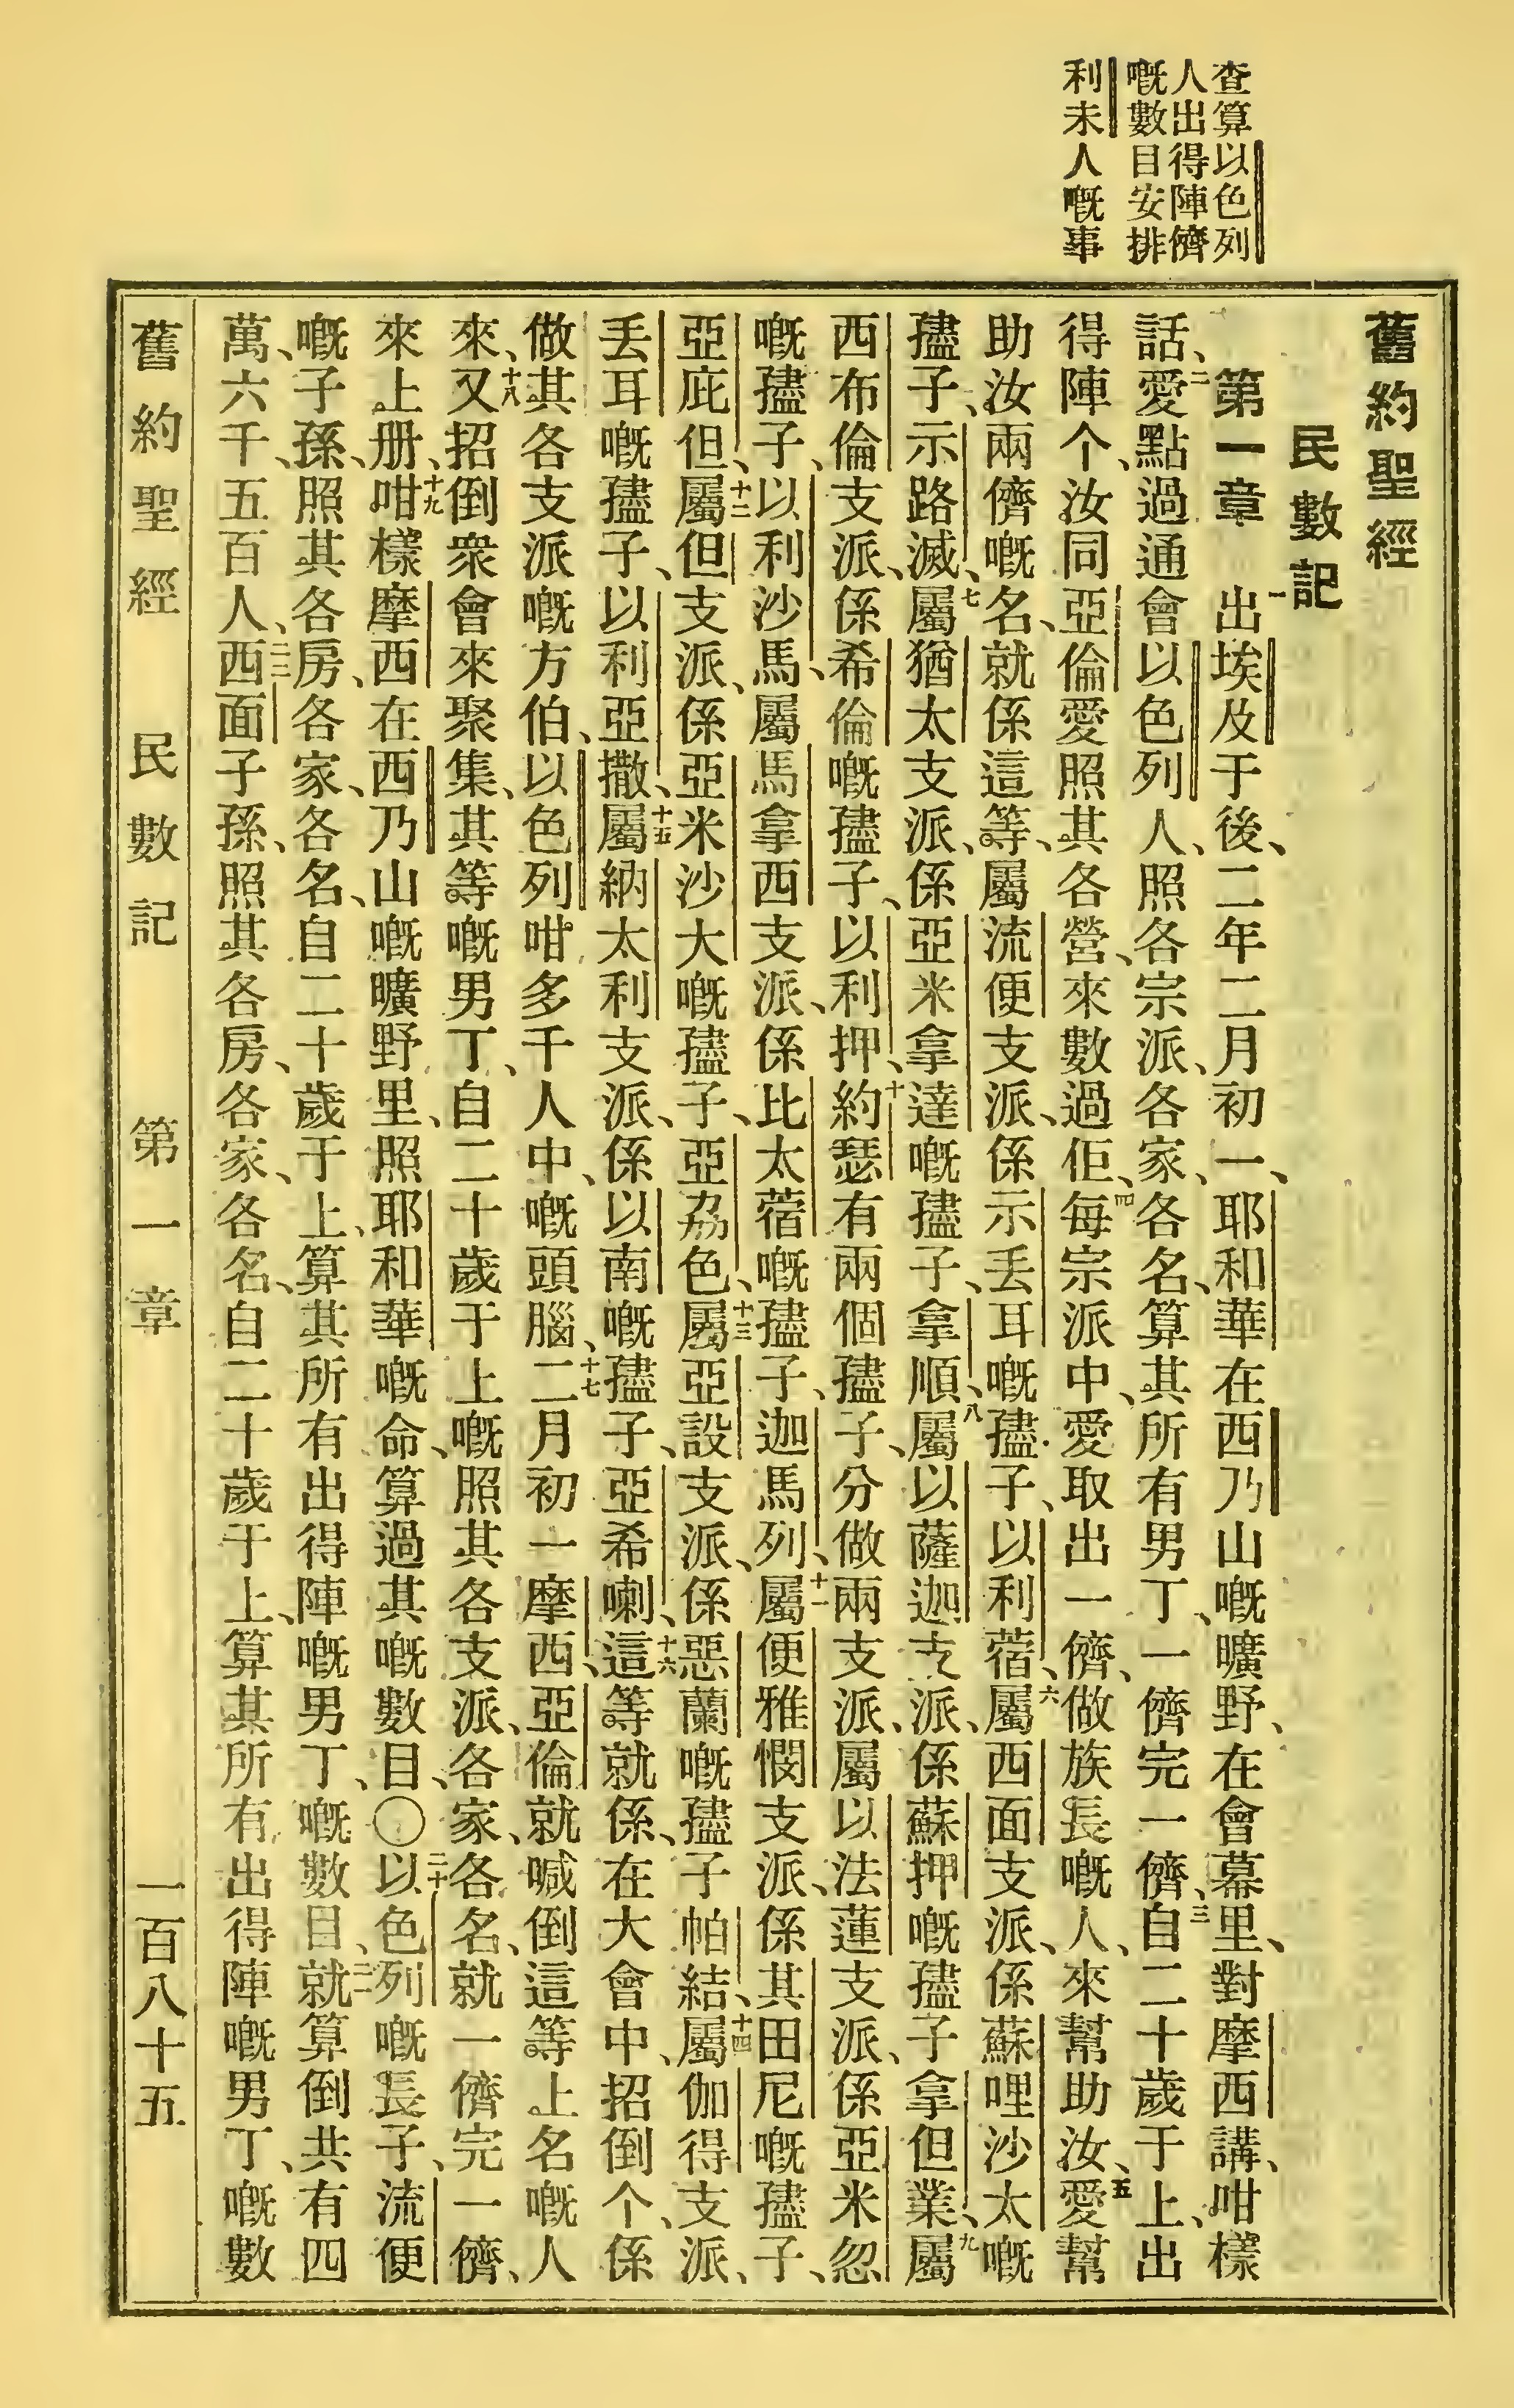 查算以色列
人出得陣儕
嘅數目安排
利未人嘅事
舊約聖經
民數記
第一章 一出埃及于後、二年二月初一、耶和華在西乃山嘅曠野、在會幕里、對摩西講、咁樣
話、二愛點過通會以色列人、照各宗派、各家、各名、算其所有男丁、一儕完一儕、三自二十歲于上、出
得陣个、汝同亞倫愛照其各營、來數過佢、四每宗派中、愛取出一儕、做族長嘅人、來幫助汝、五愛幫
助汝兩儕嘅名、就係這等、屬流便支派、係示丟耳嘅孻子、以利蓿、六屬西面支派、係蘇哩沙太嘅
孻子、示路滅、七屬猶太支派、係亞米拿達嘅孻子、拿順、八屬以薩迦支派、係蘇押嘅孻子拿但業、九屬
西布倫支派、係希倫嘅孻子、以利押、十約瑟有兩個孻子、分做兩支派、屬以法蓮支派、係亞米忽
嘅孻子、以利沙馬、屬馬拿西支派、係比太蓿嘅孻子、迦馬列、十一屬便雅憫支派、係其田尼嘅孻子、
亞庇但、十二屬但支派、係亞米沙大嘅孻子、亞劦色、十三屬亞設支派、係惡蘭嘅孻子帕結、十四屬伽得支派、
丟耳嘅孻子、以利亞撒、十五屬納太利支派、係以南嘅孻子、亞希喇、十六這等就係、在大會中、招倒个、係
做其各支派嘅方伯、以色列咁多千人中、嘅頭腦、十七二月初一摩西、亞倫就喊倒這等上名嘅人
來、十八又招倒衆會來聚集、其等嘅男丁、自二十歲于上嘅照其各支派、各家、各名、就一儕完一儕、
來上册、十九咁樣摩西在西乃山嘅曠野里、照耶和華嘅命、算過其嘅數目、〇二十以色列嘅長子、流便
嘅子孫、照其各房、各家、各名、自二十歲于上、算其所有出得陣嘅男丁、嘅數目、二一就算倒共有四
萬、六千、五百人、二二西面子孫、照其各房、各家、各名、自二十歲于上、算其所有出得陣嘅男丁、嘅數
舊約聖經 民數記 第一章 一百八十五